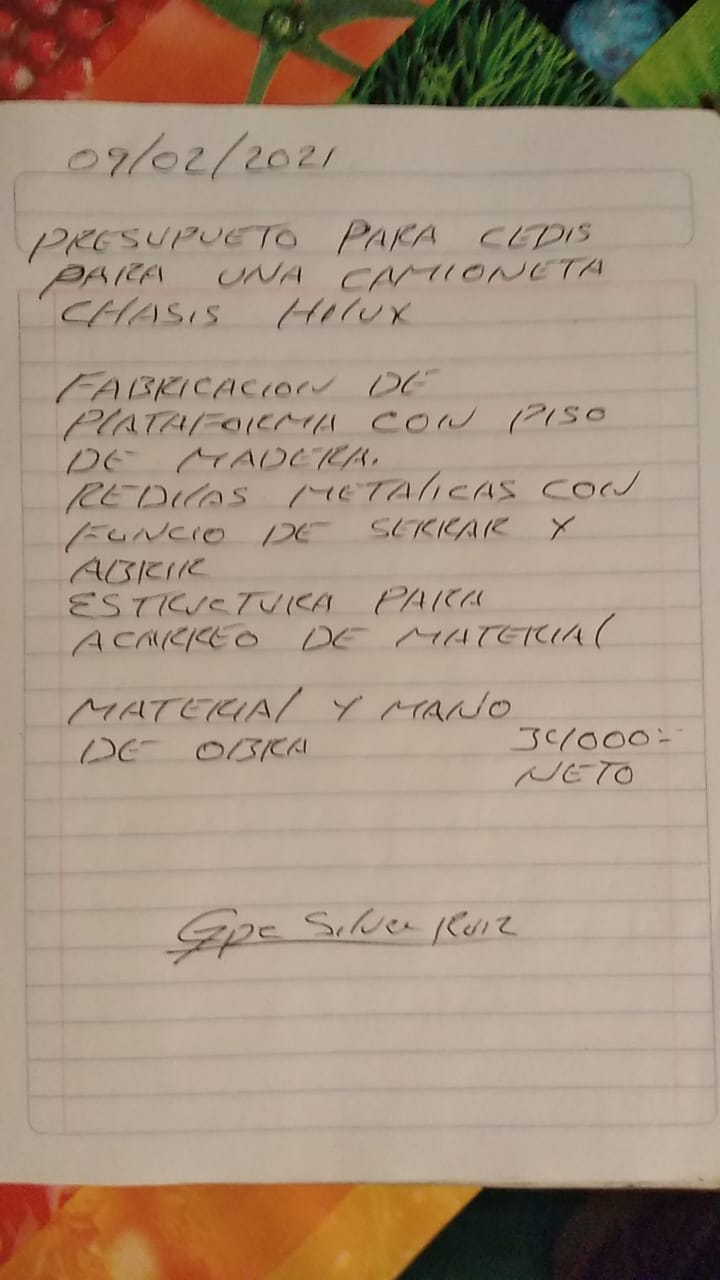 09/02/2021
PRESUPUETO PARA CEDIS
PARA UNA CAMIONETA
CHASIS HILUX
FABRICACION DE
PLATAFORMA CON PISO
DE MADERA.
REDILAS METALICAS CON
FUNCIO DE SERRAR Y
ABRIR
ESTRUCTURA PARA
ACARREO DE MATERIAL
MATERIAL Y MANO
DE OBRA
NETO
Gpe Silva Ruiz